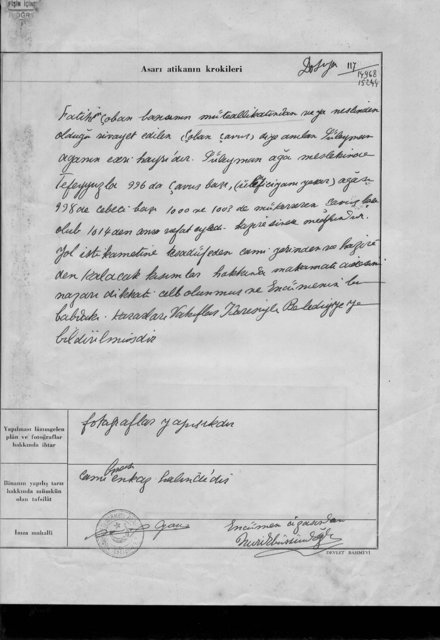 FİŞİN İÇİNE
Asarı atikanın krokileri
Dosya 117
14968
15244
Fatihte Çoban baasının müteallikatından veya neslinden
olduğu rivayet edilen Çoban Çavuş diye anılan Süleyman
ağanın eseri hayrıdır. Süleyman ağa meslekince
tefeyyüzle 996 da Çavuş başı, ağası
998 de cebeci başı 1000 ve 1003 de mükerreren çavuş başı
olub 1014 den sonra vefat eyledi. haziresinde medfundur.
Yol istikametine tesadüf eden cami yerinden ve hazire
den kalacak kısımlar hakkında makamatı aidesinin
nazarı dikkati celb olunmuş ve Encümenin bu
babdaki kararları Vakıflar İdaresiyle Belediyeye
bildirilmişdir
Yapılması lâzımgelen
plân ve fotoğraflar
hakkında ihtar
fotoğraflar yapışıktır
Binanın yapılış tarzı
hakkında mümkün
olan tafsilât
cami enkaz halindedir
İmza mahalli
Encümen azasından
DEVLET BASIMEVİ